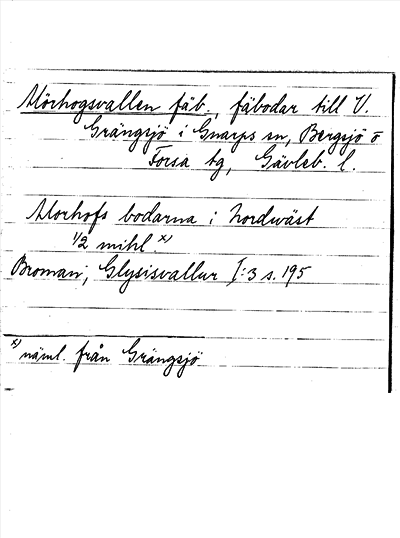 Mörhogsvallen fäb., fäbodar till V.
Grängsjö i Gnarps sn, Bergsjö o
Forsa tg, Gävleb. l.
Morhofs bodarna i Nordwäst
1/2 mihl x)
Broman, Glysisvallur I:3 s. 195
x) näml. från Grängsjö